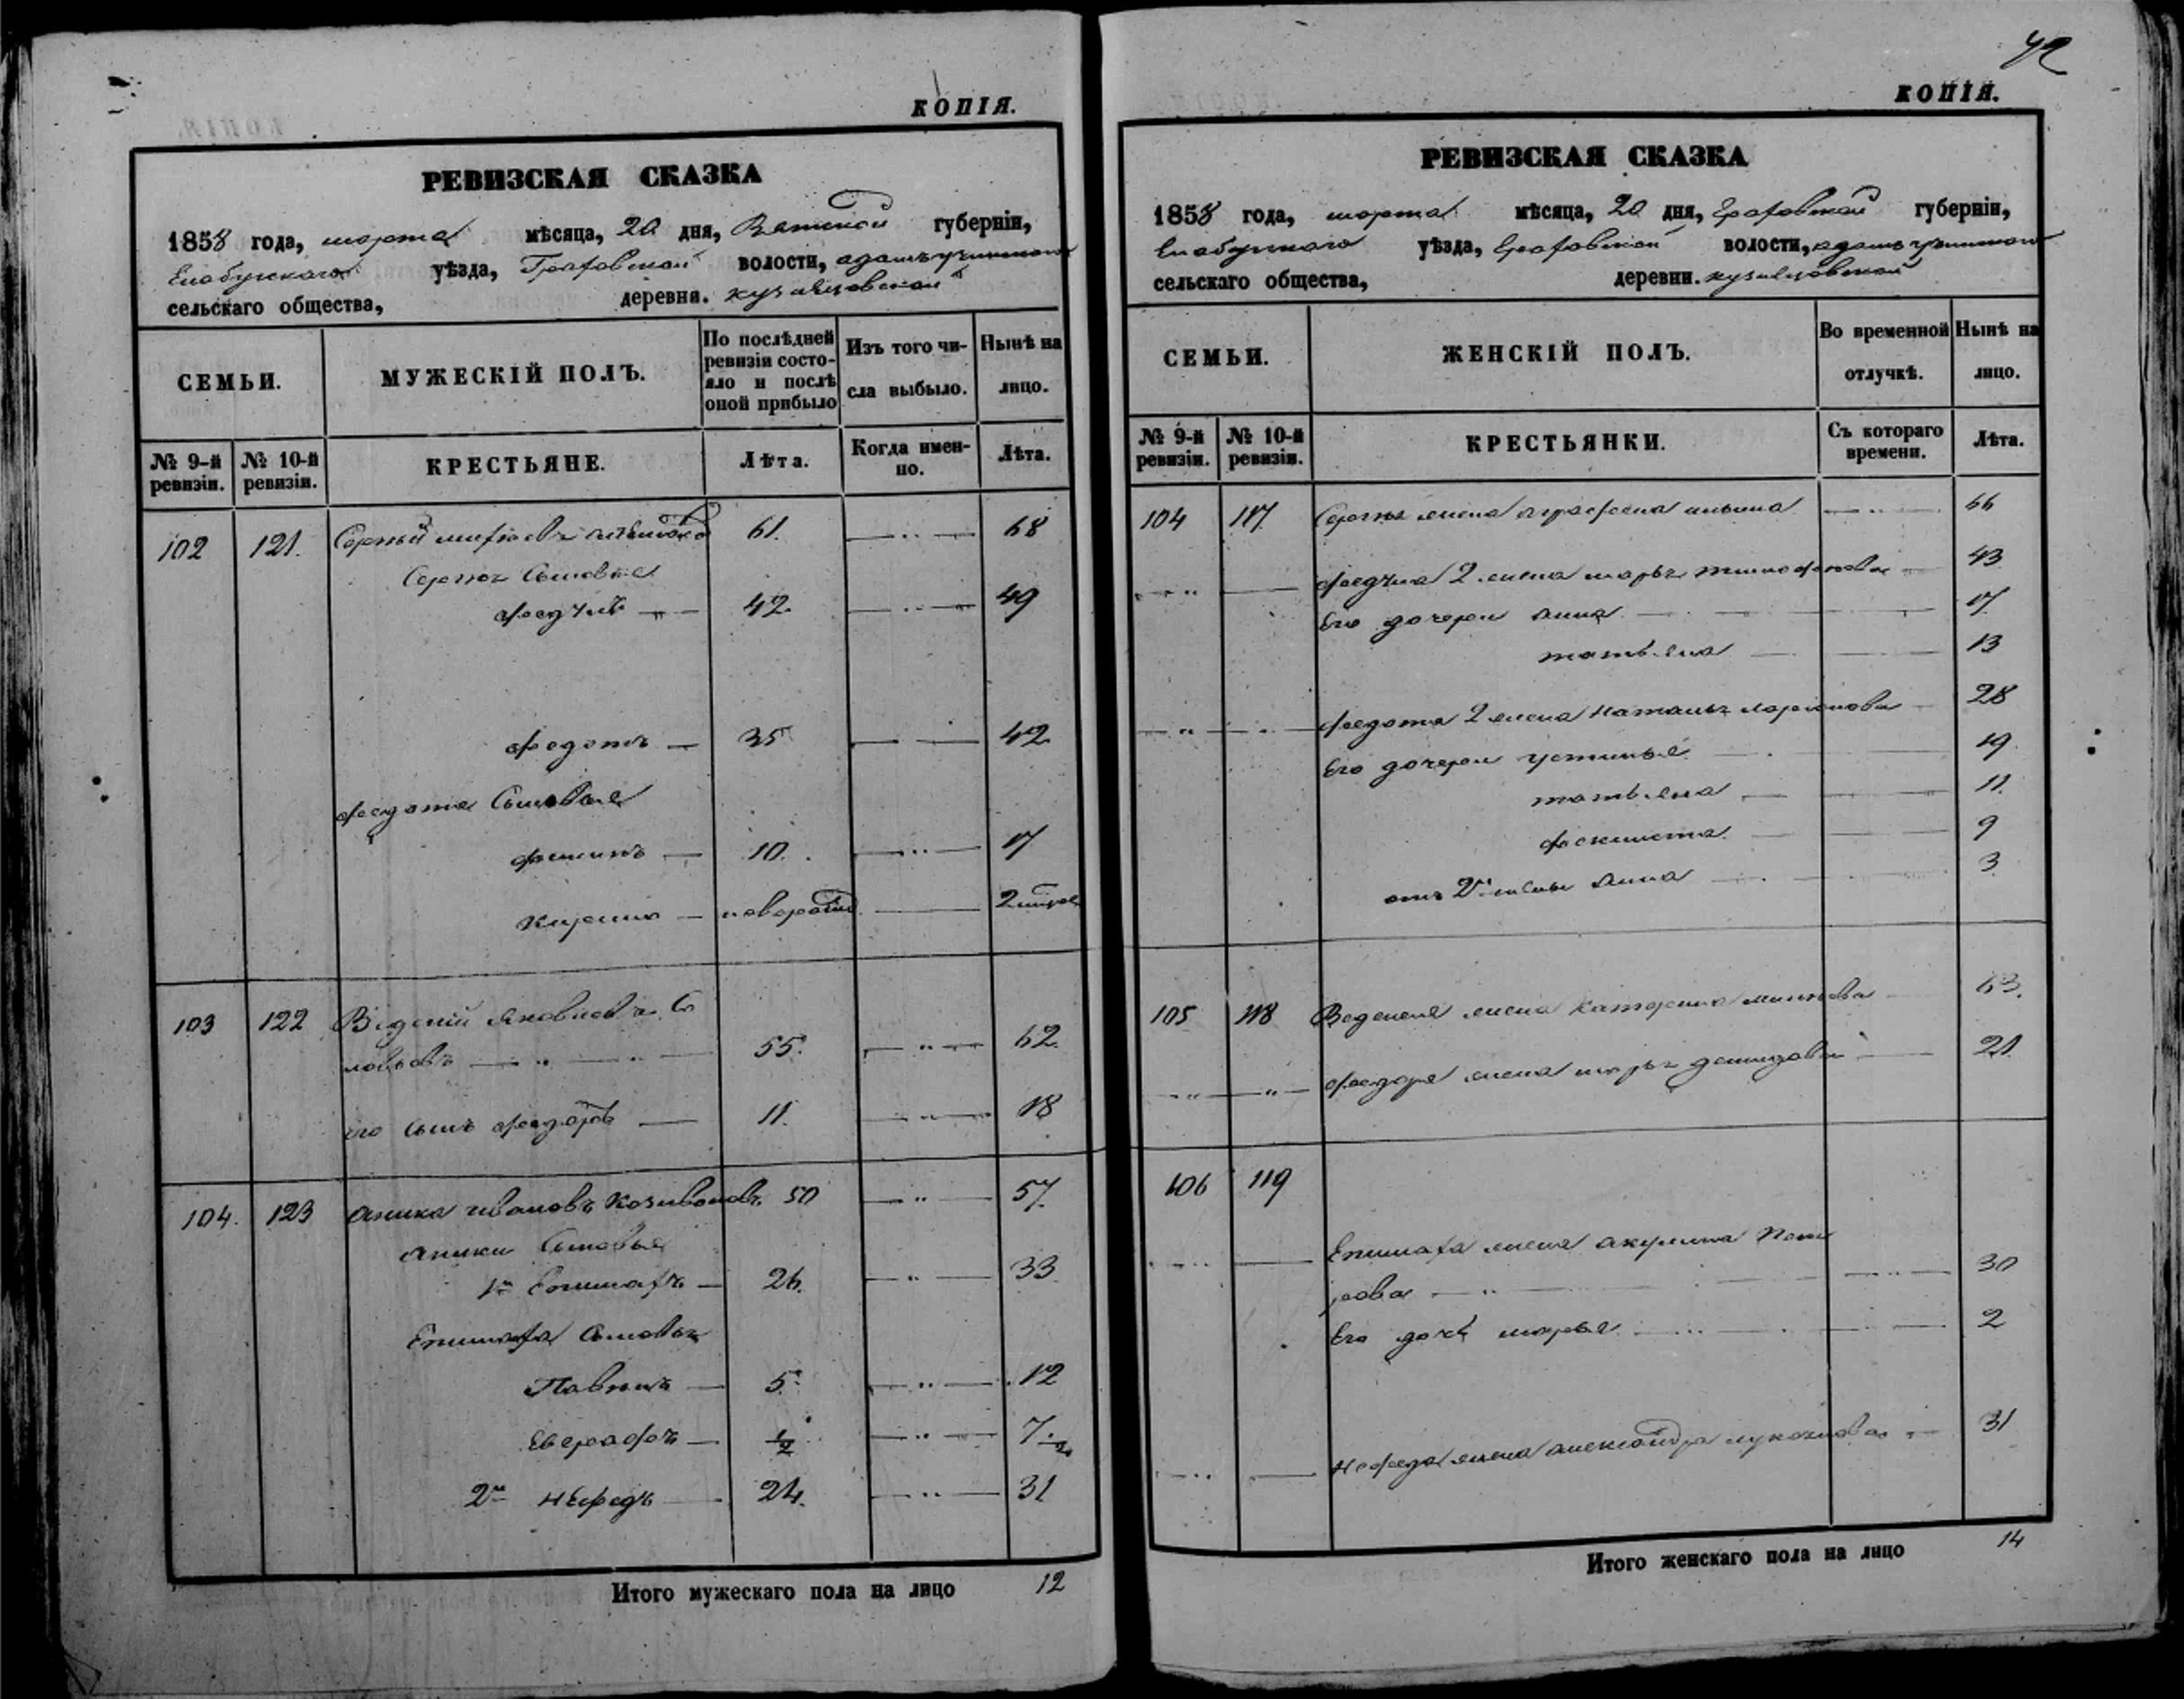 КОПІЯ.
РЕВИЗСКАЯ СКАЗКА
1858 года, марта мѣсяца, 20 дня, Вятской губерніи,
Елабужскаго уѣзда, Граховской волости,
сельскаго общества, деревни.
СЕМЬИ. МУЖЕСКІЙ ПОЛЪ. По послѣдней ревизіи состояло и послѣ оной прибыло Изъ того числа выбыло. Нынѣ на лицо.
№ 9-й ревизіи. № 10-й ревизіи. КРЕСТЬЯНЕ. Лѣта. Когда именно. Лѣта.
102 121. Сергѣй 61. 68
Сергѣя Сыновья
42. 49
Федотъ 35 42
Федота Сыновья
Филипъ 10. 17
Кирило новорожд 2
103 122 Веденій Яковлевъ Со
ловьевъ 55. 62.
его сынъ Федоръ 11. 18
104. 123 Аника Ивановъ 50 57.
Аники Сыновья
1й Епимахъ 26. 33
Епимаха Сыновья
5. 12
Евграфъ 1/2 7 1/2
2й Нефедъ 24. 31
Итого мужескаго пола на лицо 12
42
КОПІЯ.
РЕВИЗСКАЯ СКАЗКА
1858 года, марта мѣсяца, 20 дня, Граховской губерніи,
Елабужскаго уѣзда, Граховской волости,
сельскаго общества, деревни.
СЕМЬИ. ЖЕНСКІЙ ПОЛЪ. Во временной отлучкѣ. Нынѣ на лицо.
№ 9-й ревизіи. № 10-й ревизіи. КРЕСТЬЯНКИ. Съ котораго времени. Лѣта.
104 117 Сергѣя жена Аграфена Ильина 66
2 жена Марья 43
Его дочери Анна 17
Татьяна 13
Федота 2 жена Наталья Ларионова 28
Его дочери Устинья 19
Татьяна 11.
Феклиста 9
отъ 2й жены Анна 3
105 118 Веденея жена Катерина 63.
Федора жена Марья Демидова 21
106 119
Епимаха жена Акулина
рова 30
Его дочь Марья 2
Нефеда жена Александра 31
Итого женскаго пола на лицо 14